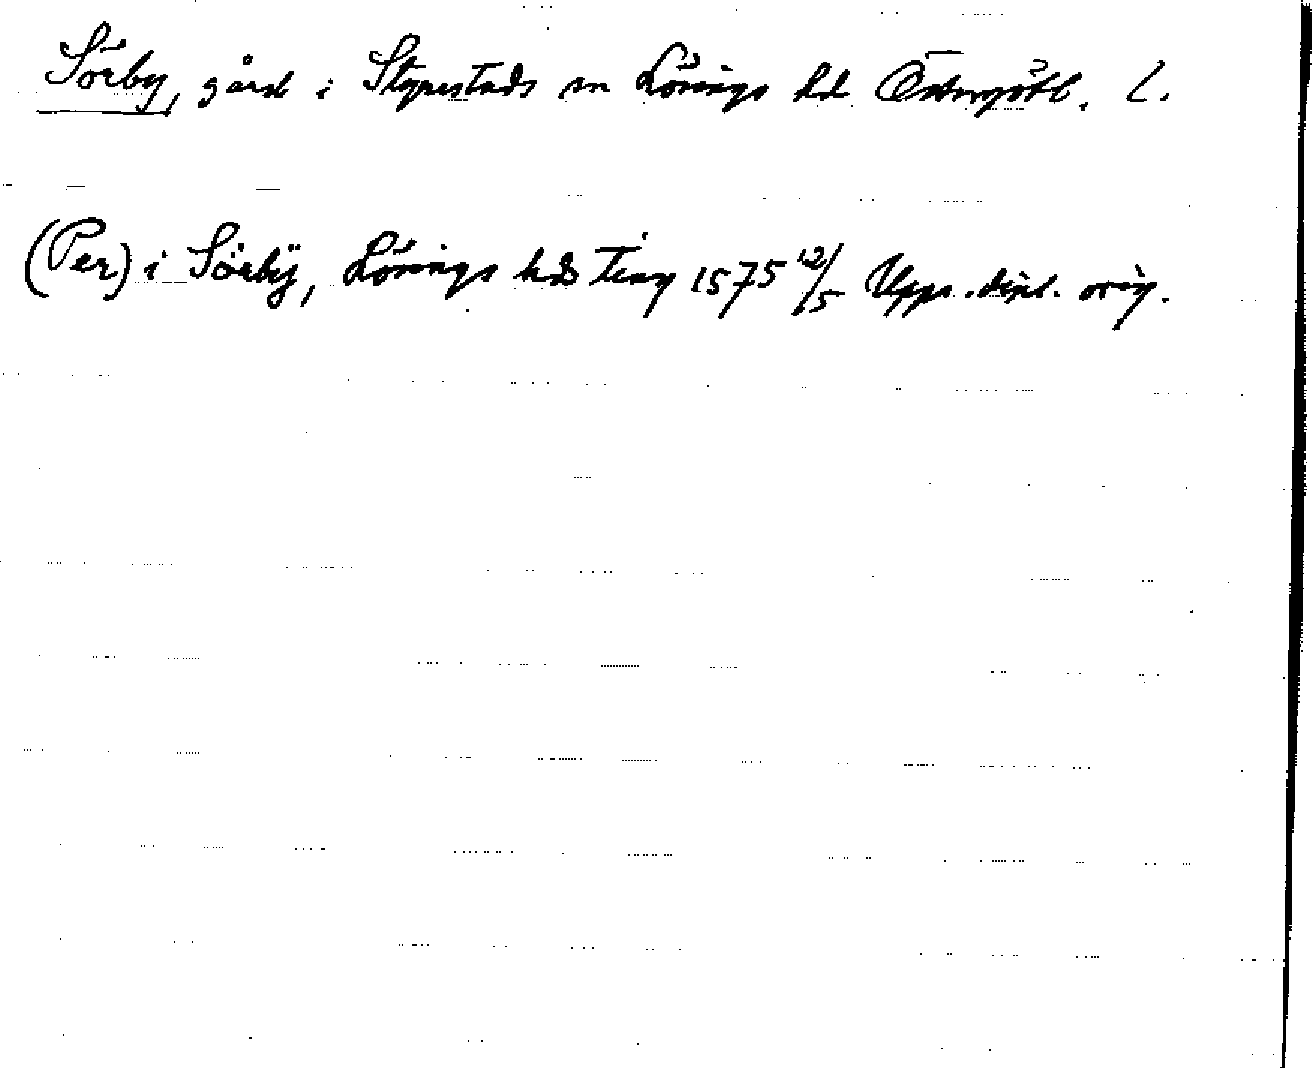 Sörby, gård i Styrestads sn Lösings hd Östergötl. l.
(Per) i Sörbÿ, Lösings hds ting 1575 12/5 Upps. dipl. orig.